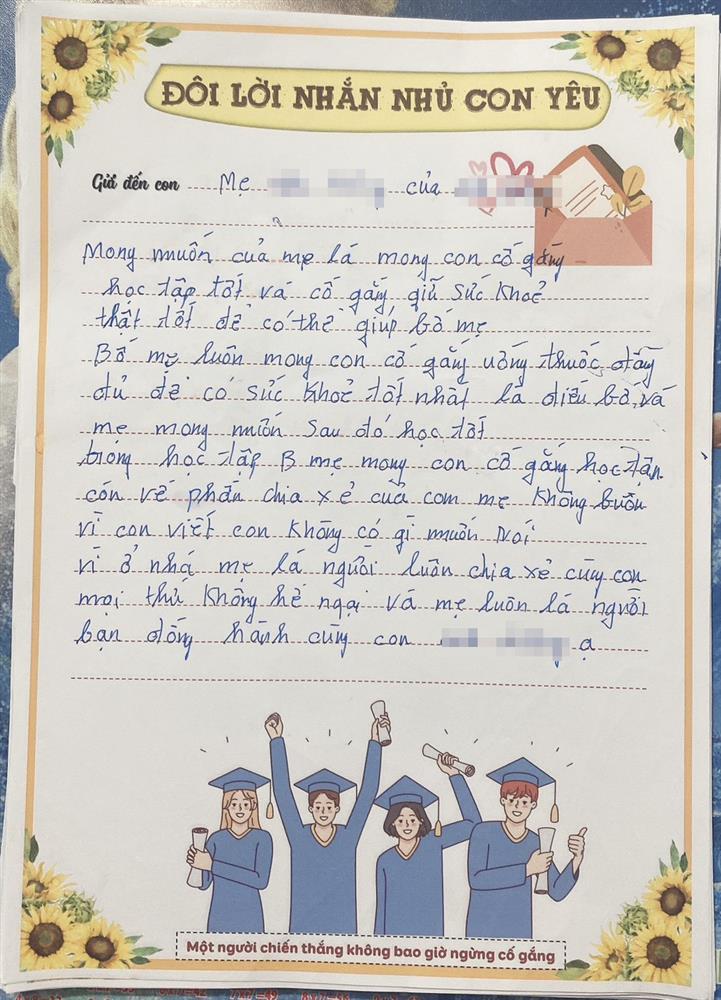 ĐÔI LỜI NHẮN NHỦ CON YÊU
Gửi đến con Mẹ của
Mong muốn của mẹ là mong con cố gắng
học tập tốt và cố gắng giữ sức khoẻ
thật tốt để có thể giúp bố mẹ
Bố mẹ luôn mong con cố gắng uống thuốc đầy
đủ để có sức khoẻ tốt nhất là điều bố và
mẹ mong muốn sau đó học tốt
trong học tập B mẹ mong con cố gắng học tập
còn về phần chia xẻ của com mẹ không buồn
vì con viết con không có gì muốn nói
vì ở nhà mẹ là người luôn chia xẻ cùng con
mọi thứ không hề ngại và mẹ luôn là người
bạn đồng hành cùng con ạ
Một người chiến thắng không bao giờ ngừng cố gắng